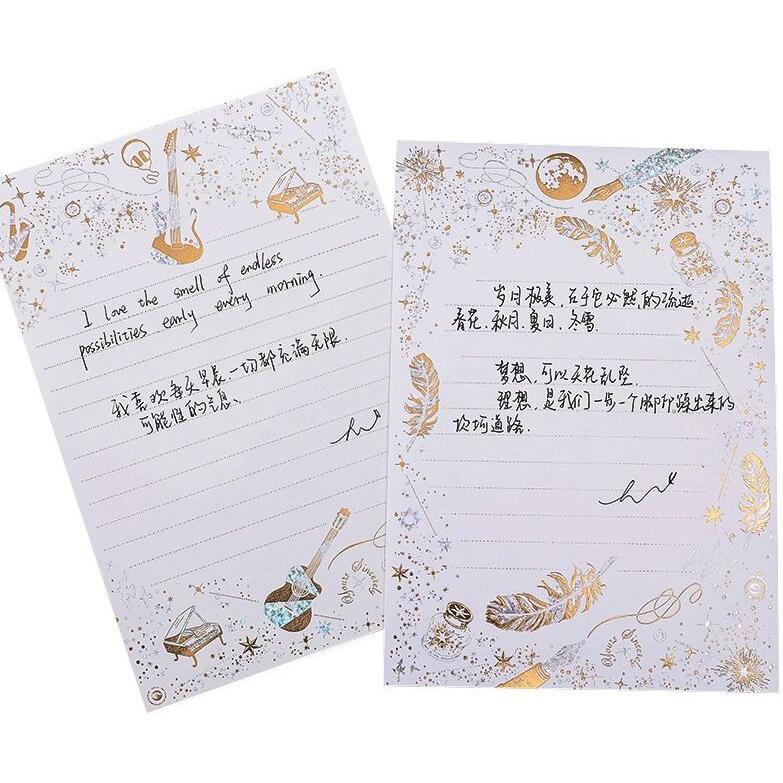 I love the smell of endless
possibilities early every morning.
我喜欢每天早晨、一切都充满无限
可能性的气息、
Yours Sincerely
岁月极美,在于它必然的流逝
春花、秋月、夏日、冬雪
梦想,可以天花乱坠
理想,是我们一步一个脚印踩出来的
坎坷道路.
Yours Sincerely